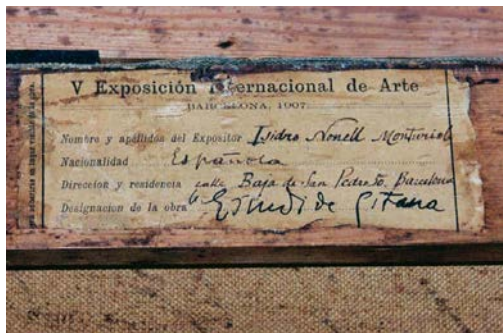 V Exposición Internacional de Arte
BARCELONA, 1907
Nombre y apellidos del Expositor Isidro Nonell Monturiol
Nacionalidad Española
Direccion y residencia calle Baja de San Pedro Barcelona
Designacion de la obra Estudi de Gitana